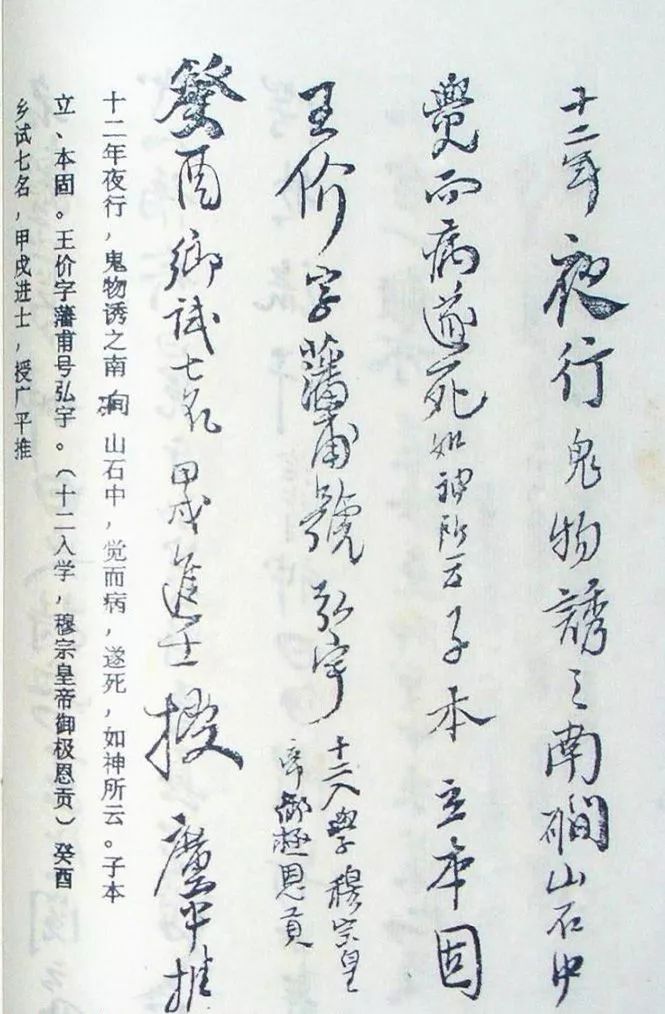 十二年夜行鬼物誘之南磵山石中
覺而病遂死如神所云子本立本固
王价字藩甫號弘宇十二入學穆宗皇
帝御極恩貢
癸酉鄉試七名甲戌進士授廣平推
十二年夜行，鬼物诱之南㵎山石中，觉而病，遂死，如神所云。子本
立、本固。王价字藩甫号弘宇。（十二入学，穆宗皇帝御极恩贡）癸酉
乡试七名，甲戌进士，授广平推